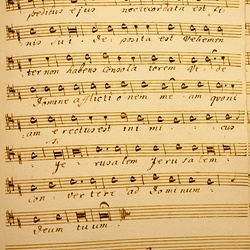 peditus ejus nec recordata est fi
nis sui. De posita est vehemen
ter non habens consola torem Vi de
Domine afflicti o nem me am quoni
am e rectus est ini mi cus
Je rusalem Jerusalem.
con ver te re ad Dominum
Deum tuum.